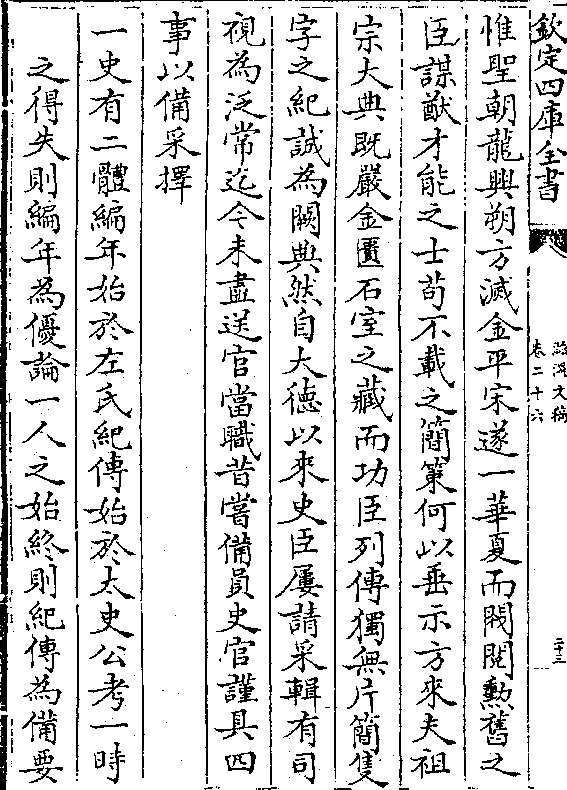 欽定四庫全書
滋溪文稿
卷二十六
二十三
惟聖朝龍興朔方滅金平宋遂一華夏而閥閱勲舊之
臣謀猷才能之士茍不載之簡策何以垂示方來夫祖
宗大典既嚴金匱石室之藏而功臣列傳獨無片簡隻
字之紀誠為闕典然自大徳以來史臣屢請采輯有司
視為泛常迄今未盡送官當職昔嘗備員史官謹具四
事以備采擇
一史有二體編年始於左氏紀傳始於太史公考一時
之得失則編年為優論一人之始終則紀傳為備要